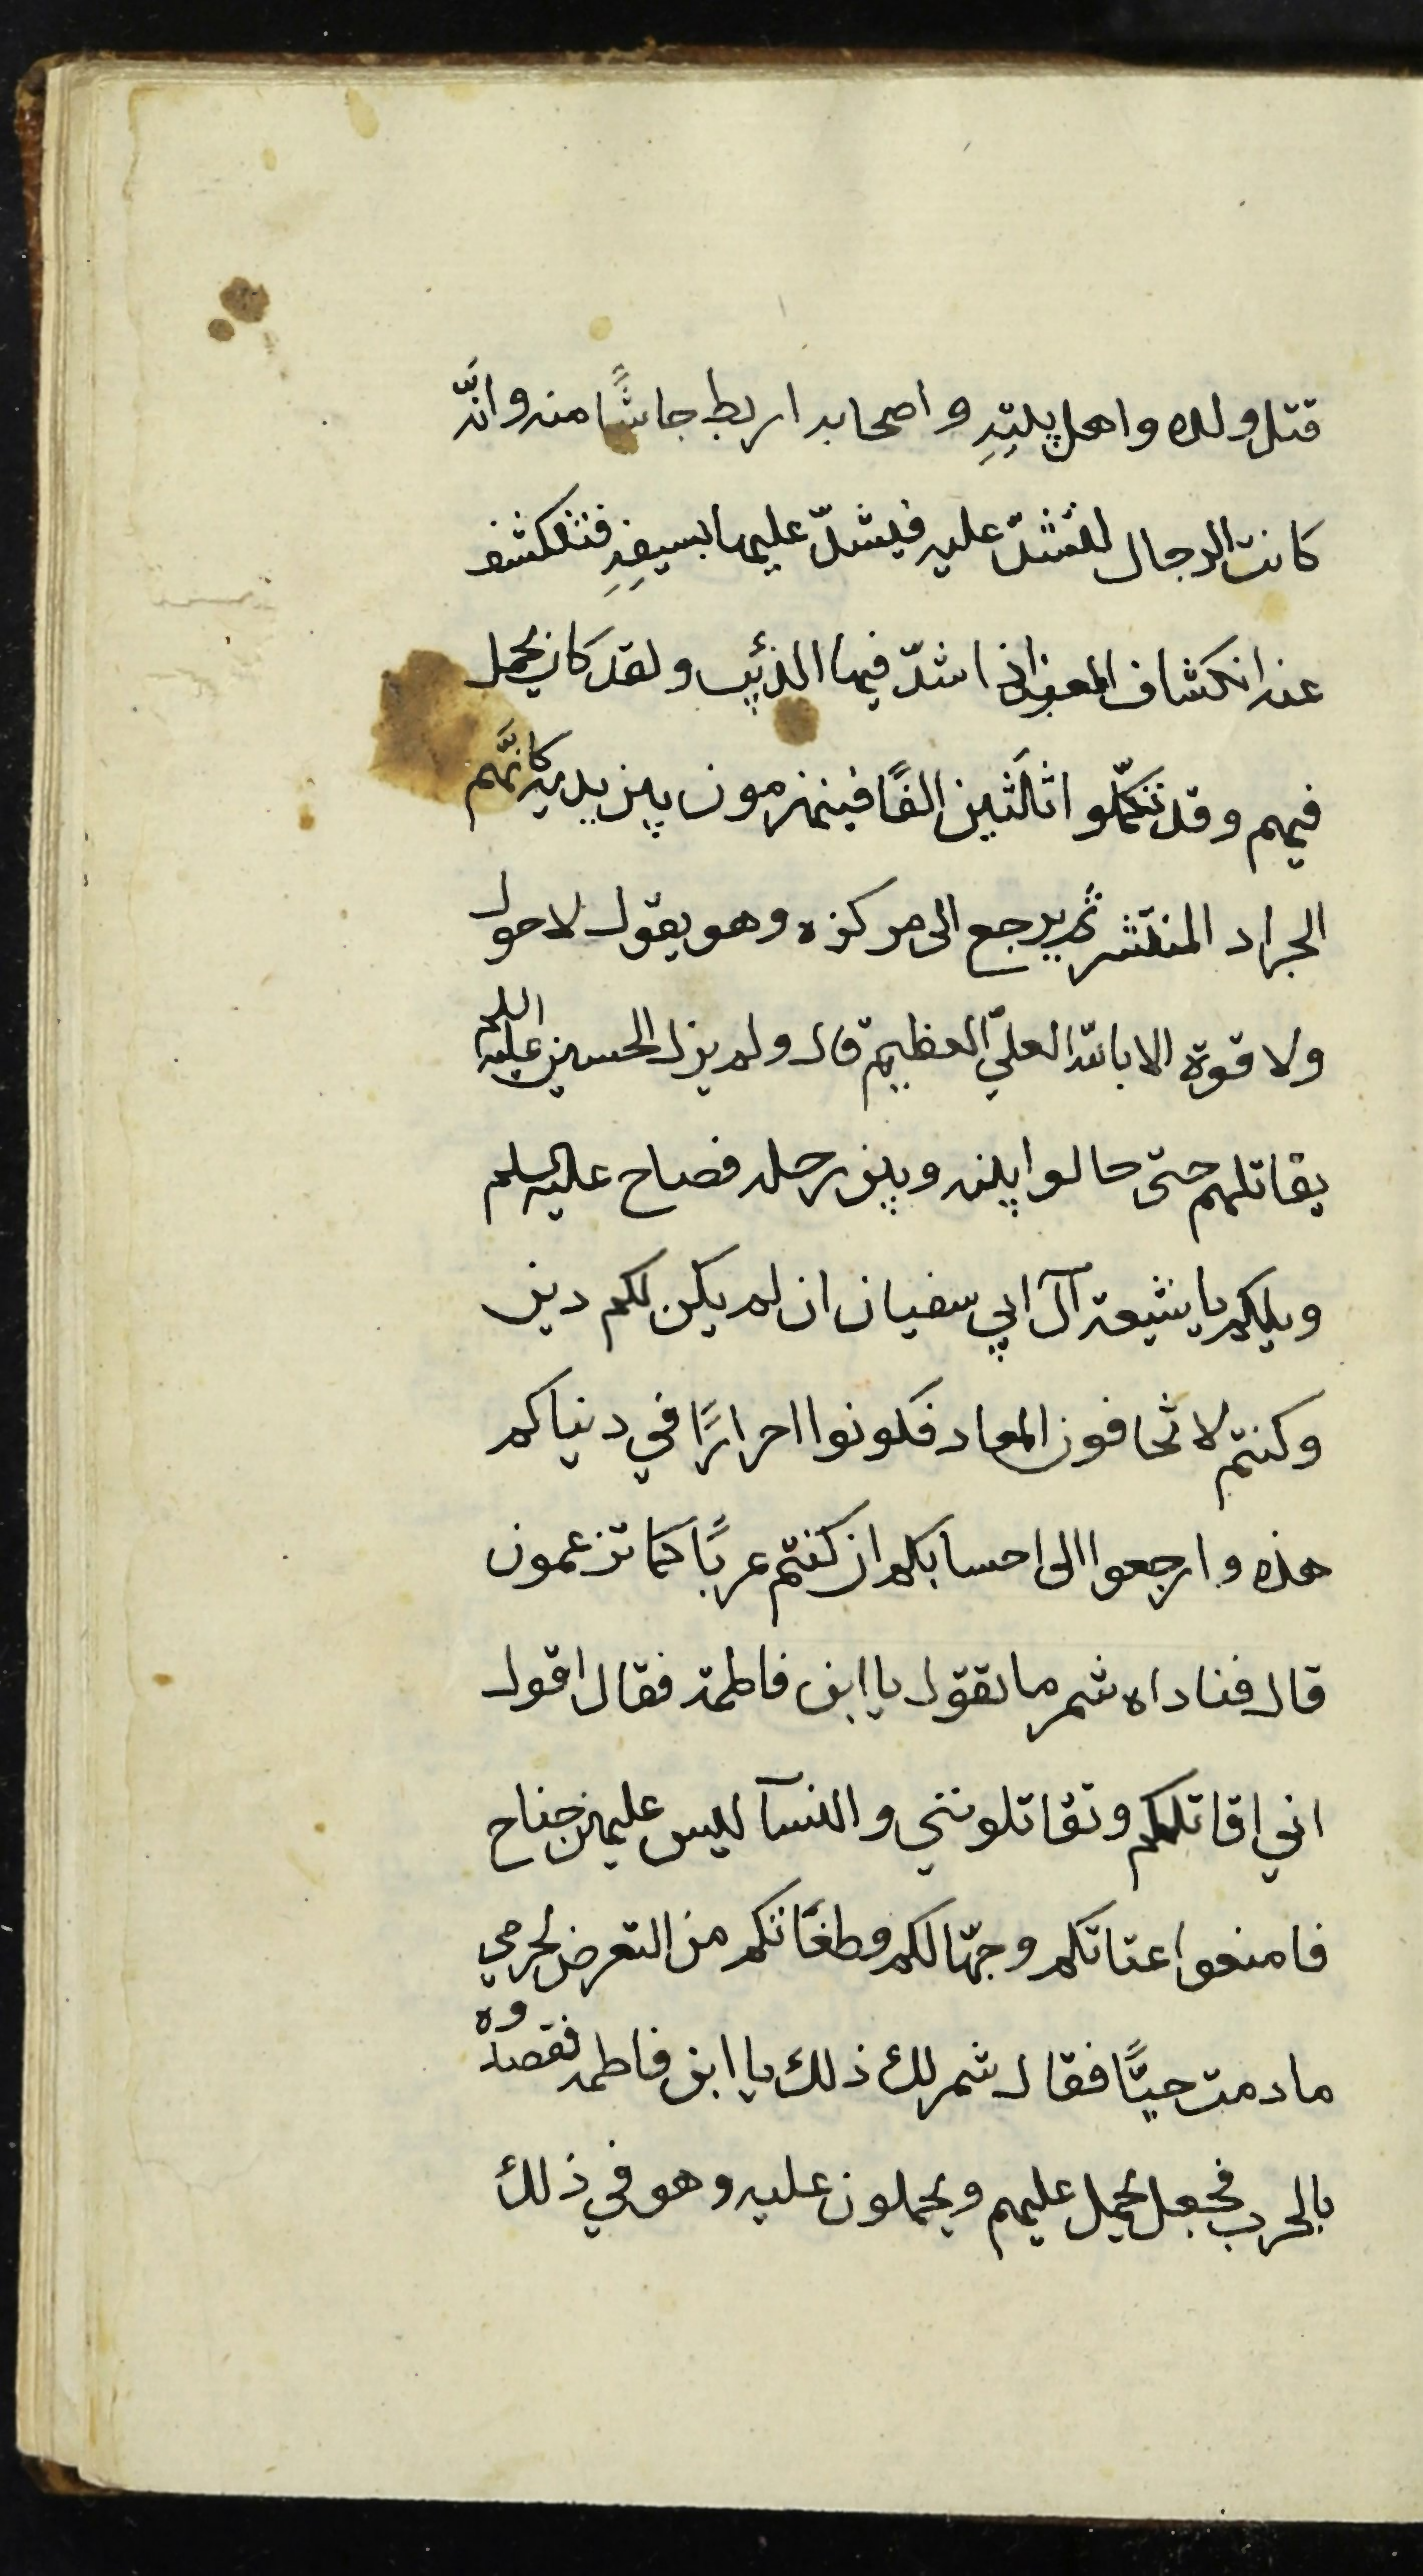 قتل ولده واهل بيتِهِ واصحابه اربط جاشًا منه وانَّ
كانت الرجال لتشدّ عليه فيشدّ عليها بسيفِهِ فتنكشف
عنه انكشاف المعز اذا شدّ فيها الذئب ولقد كان يحمل
فيهم وقد تكمّلوا ثلَثين الفًا فينهزمون بين يديه كانَّهم
الجراد المنتشر ثم يرجع الى مركزه وهو يقول لا حول
ولا قوة الا بالله العليّ العظيم قال ولم يزل الحسين عليه السلم
يقاتلهم حتى حالوا بينه وبين رحله فصاح عليه السلم
ويلكم يا شيعة آل ابي سفيان ان لم يكن لكم دين
وكنتم لا تخافون المعاد فكونوا احرارًا في دنياكم
هذه وارجعوا الى احسابكم ان كنتم عربًا كما تزعمون
قال فناداه شمر ما تقول يا ابن فاطمة فقال اقول
اني اقاتلكم وتقاتلونني والنسآ ليس عليهن جناح
فامنعوا عتاتكم وجهّالكم وطغاتكم من التعرض لحرمي
ما دمت حيًّا فقال شمر لك ذلك يا ابن فاطمة فقصدوه
بالحرب فجعل يحمل عليهم ويحملون عليه وهو في ذلك